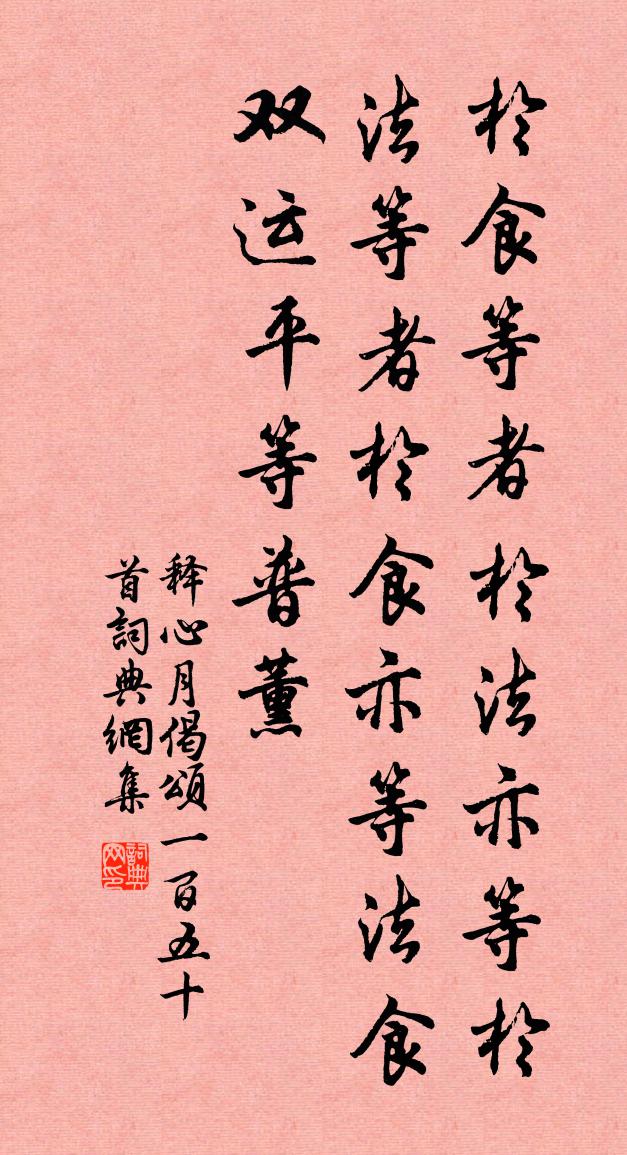 於食等者於法亦等於
法等者於食亦等法食
双运平等普薰
释心月偈頌一百五十
首詞典網集
詞典网印